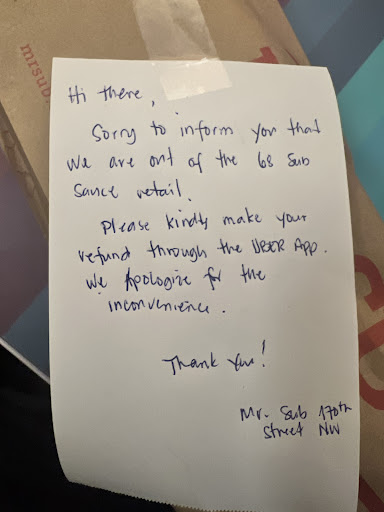 mrsub.
Hi there,
Sorry to inform you that
we are out of the 68 Sub
Sauce retail.
Please kindly make your
refund through the UBER App.
We Apologize for the
inconvenience.
Thank You!
Mr. Sub 170th
Street NW